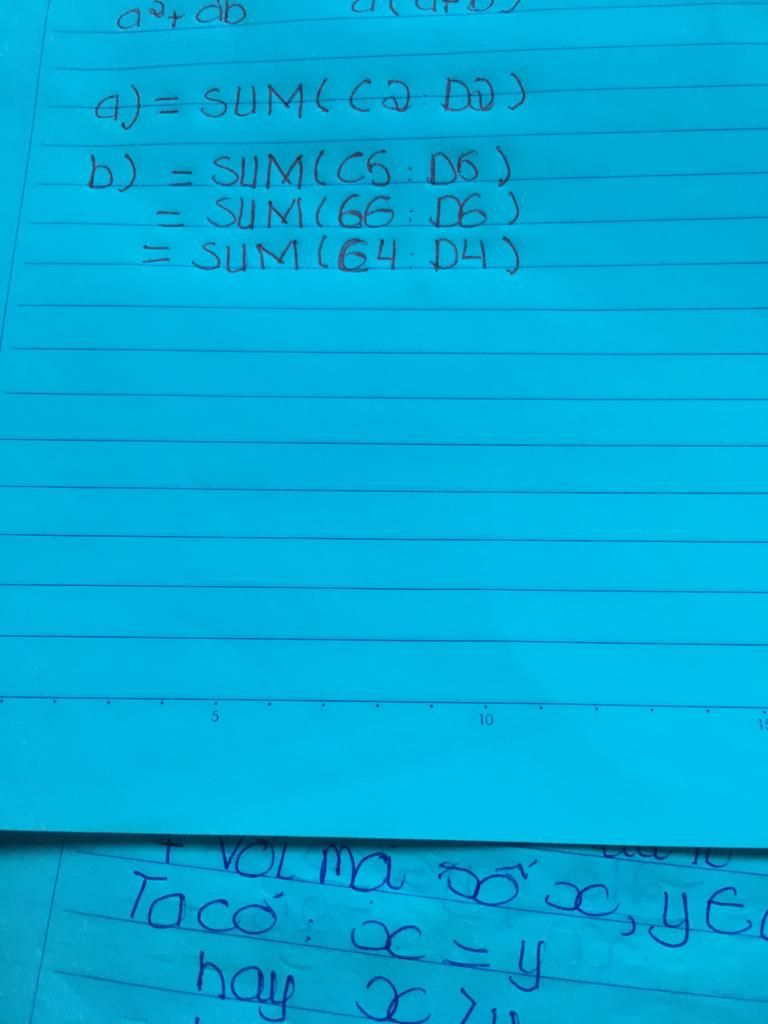 a² + ab
a) = SUM(C2:D2)
b) = SUM(C5:D5)
= SUM(G6:D6)
= SUM(G4:D4)
5 10 15
+ Với mã số x, y ∈
Ta có: x = y
hay x > y